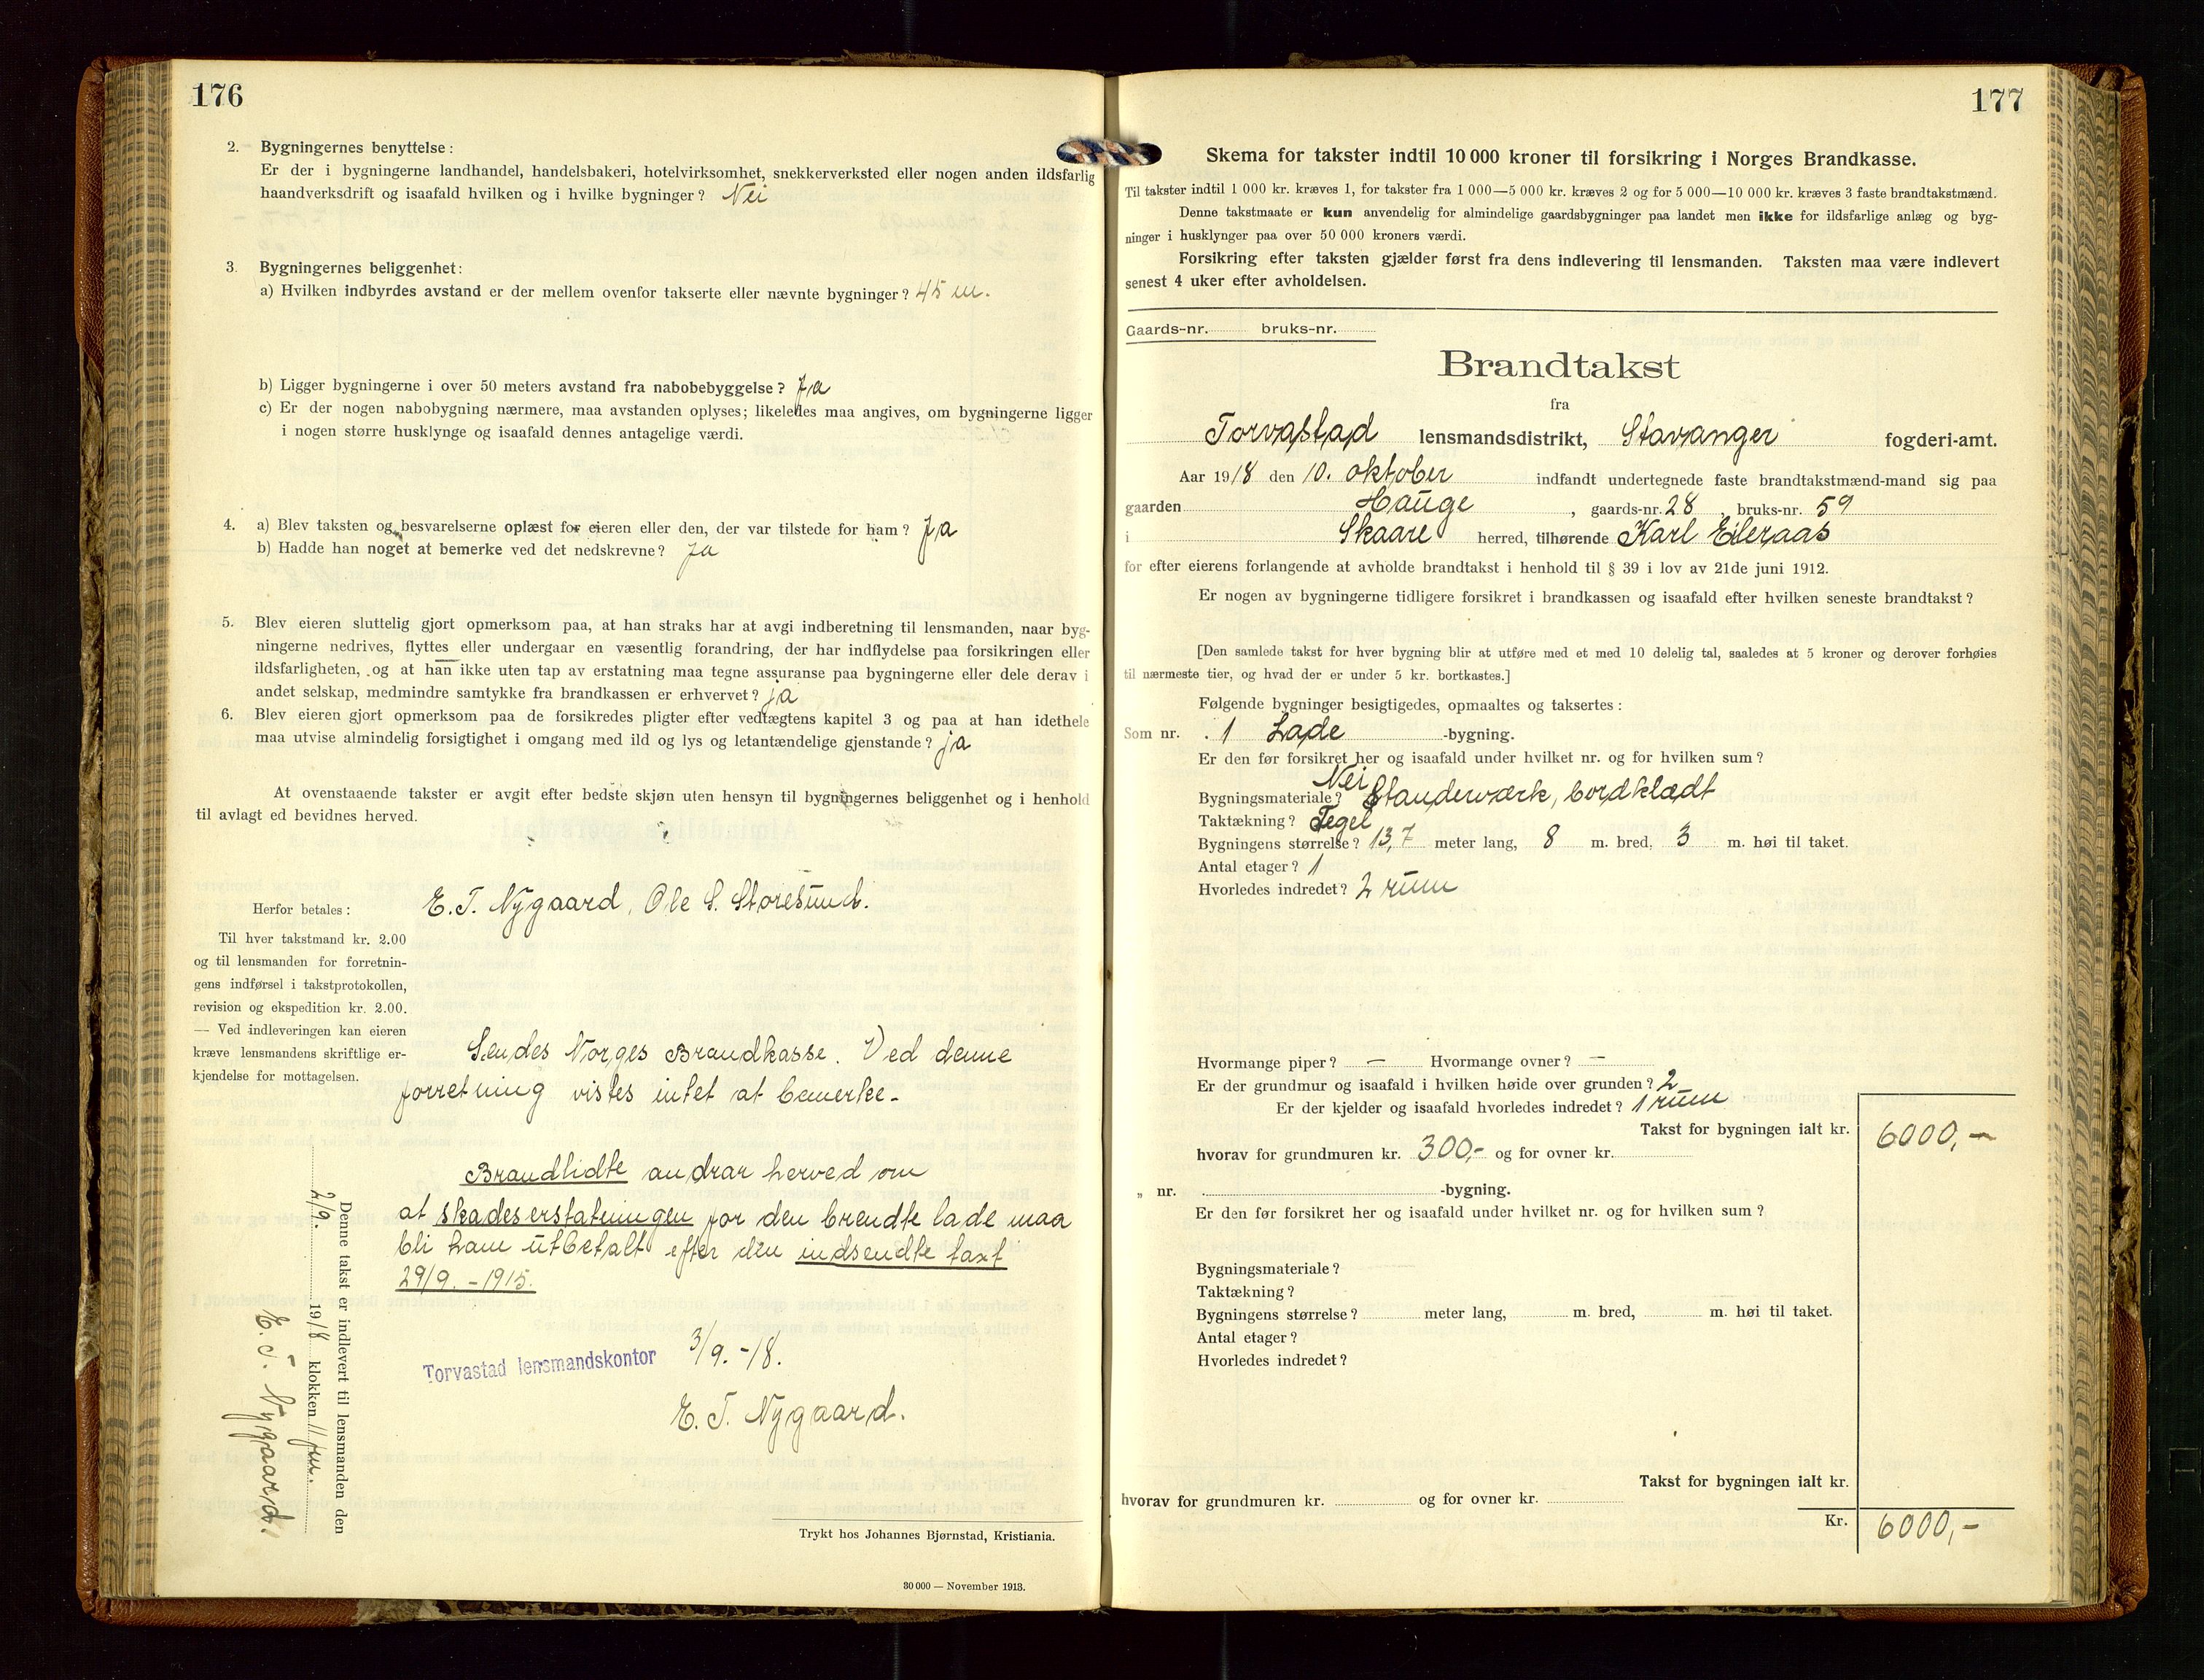 176
2. Bygningernes benyttelse:
Er der i bygningerne landhandel, handelsbakeri, hotelvirksomhet, snekkerverksted eller nogen anden ildsfarlig
haandverksdrift og isaafald hvilken og i hvilke bygninger? Nei
3. Bygningernes beliggenhet:
a) Hvilken indbyrdes avstand er der mellem ovenfor takserte eller nævnte bygninger? 45 m.
b) Ligger bygningerne i over 50 meters avstand fra nabobebyggelse? Ja
c) Er der nogen nabobygning nærmere, maa avstanden oplyses; likeledes maa angives, om bygningerne ligger
i nogen større husklynge og isaafald dennes antagelige værdi.
4. a) Blev taksten og besvarelserne oplæst for eieren eller den, der var tilstede for ham? Ja
b) Hadde han noget at bemerke ved det nedskrevne? Ja
5. Blev eieren sluttelig gjort opmerksom paa, at han straks har at avgi indberetning til lensmanden, naar byg-
ningerne nedrives, flyttes eller undergaar en væsentlig forandring, der har indflydelse paa forsikringen eller
ildsfarligheten, og at han ikke uten tap av erstatning maa tegne assuranse paa bygningerne eller dele derav i
andet selskap, medmindre samtykke fra brandkassen er erhvervet? ja
6. Blev eieren gjort opmerksom paa de forsikredes pligter efter vedtægtens kapitel 3 og paa at han idethele
maa utvise almindelig forsigtighet i omgang med ild og lys og letantændelige gjenstande? ja
At ovenstaaende takster er avgit efter bedste skjøn uten hensyn til bygningernes beliggenhet og i henhold
til avlagt ed bevidnes herved.
E. T. Nygaard, Ole S. Storesund.
Herfor betales:
Til hver takstmand kr. 2.00
og til lensmanden for forretnin-
gens indførsel i takstprotokollen,
revision og ekspedition kr. 2.00.
— Ved indleveringen kan eieren
kræve lensmandens skriftlige er-
kjendelse for mottagelsen.
Sendes Norges Brandkasse. Ved denne
forretning vistes intet at bemerke.-
Brandlidte andrar herved om
at skadeserstatningen for den brendte lade maa
bli ham utbetalt efter den indsendte taxt
29/9. - 1915.
Torvastad lensmandskontor 3/9. -18.
E. T. Nygaard.
Denne takst er indlevert til lensmanden den
2/9. 1918 klokken 11 fm.
E. T. Nygaard.
Trykt hos Johannes Bjørnstad, Kristiania.
30 000 — November 1913.
177
Skema for takster indtil 10 000 kroner til forsikring i Norges Brandkasse.
Til takster indtil 1 000 kr. kræves 1, for takster fra 1 000—5 000 kr. kræves 2 og for 5 000—10 000 kr. kræves 3 faste brandtakstmænd.
Denne takstmaate er kun anvendelig for almindelige gaardsbygninger paa landet men ikke for ildsfarlige anlæg og byg-
ninger i husklynger paa over 50 000 kroners værdi.
Forsikring efter taksten gjælder først fra dens indlevering til lensmanden. Taksten maa være indlevert
senest 4 uker efter avholdelsen.
Gaards-nr. bruks-nr.
Brandtakst
fra
Torvastad lensmandsdistrikt, Stavanger fogderi-amt.
Aar 1918 den 10. oktober indfandt undertegnede faste brandtakstmænd-mand sig paa
gaarden Hauge, gaards-nr. 28, bruks-nr. 59
i Skaare herred, tilhørende Karl Eileraas
for efter eierens forlangende at avholde brandtakst i henhold til § 39 i lov av 21de juni 1912.
Er nogen av bygningerne tidligere forsikret i brandkassen og isaafald efter hvilken seneste brandtakst?
[Den samlede takst for hver bygning blir at utføre med et med 10 delelig tal, saaledes at 5 kroner og derover forhøies
til nærmeste tier, og hvad der er under 5 kr. bortkastes.]
Følgende bygninger besigtigedes, opmaaltes og taksertes:
Som nr. 1 Lade -bygning.
Er den før forsikret her og isaafald under hvilket nr. og for hvilken sum?
Nei
Bygningsmateriale? Standerværk, bordklædt
Taktækning? Tegel
Bygningens størrelse? 13,7 meter lang, 8 m. bred, 3 m. høi til taket.
Antal etager? 1
Hvorledes indredet? 2 rum
Hvormange piper? — Hvormange ovner? —
Er der grundmur og isaafald i hvilken høide over grunden? 2
Er der kjelder og isaafald hvorledes indredet? 1 rum
Takst for bygningen ialt kr. 6000,-
hvorav for grundmuren kr. 300,- og for ovner kr.
„ nr. -bygning.
Er den før forsikret her og isaafald under hvilket nr. og for hvilken sum?
Bygningsmateriale?
Taktækning?
Bygningens størrelse? meter lang, m. bred, m. høi til taket.
Antal etager?
Hvorledes indredet?
Takst for bygningen ialt kr.
hvorav for grundmuren kr. og for ovner kr.
Kr. 6000,-